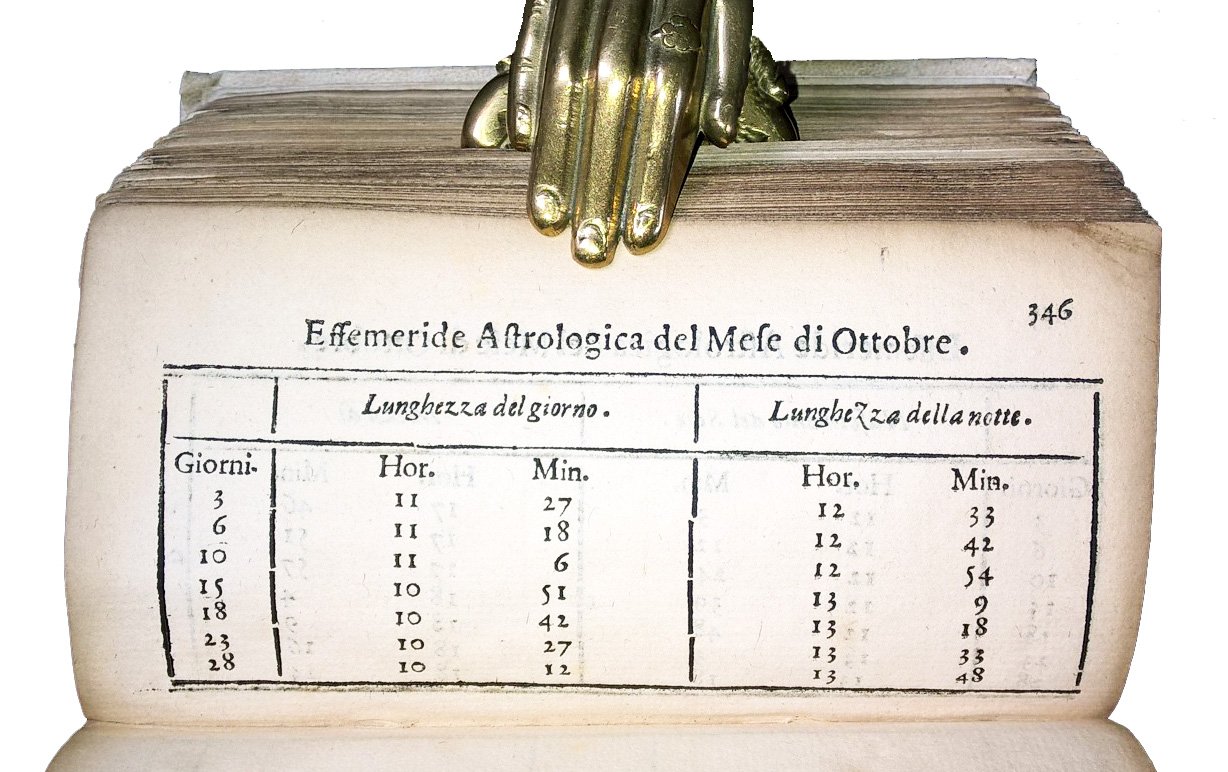 346
Effemeride Aſtrologica del Meſe di Ottobre.
Lunghezza del giorno. Lunghezza della notte.
Giorni. Hor. Min. Hor. Min.
3 11 27 12 33
6 11 18 12 42
10 11 6 12 54
15 10 51 13 9
18 10 42 13 18
23 10 27 13 33
28 10 12 13 48